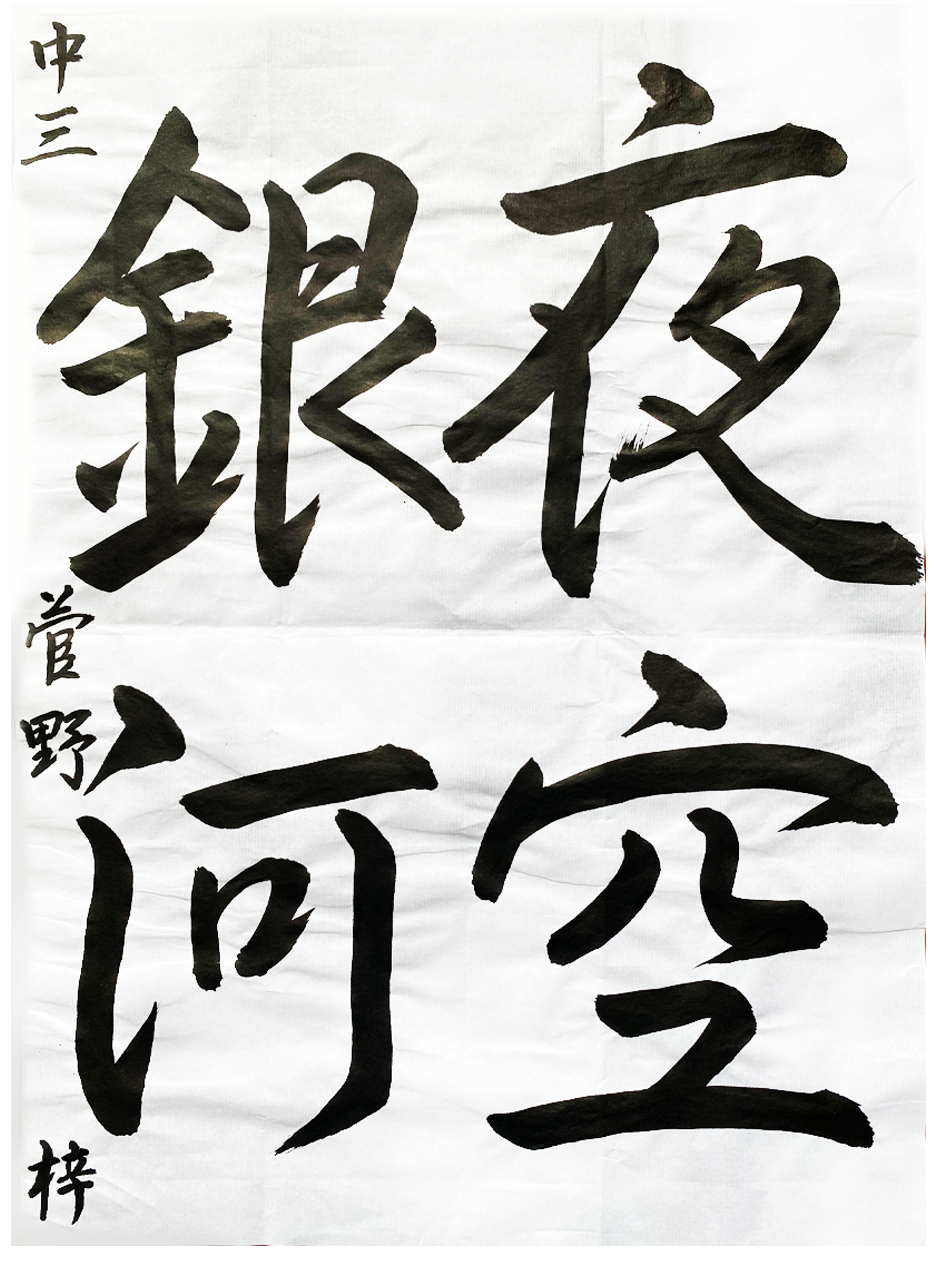 夜空
銀河
中三 菅野 梓